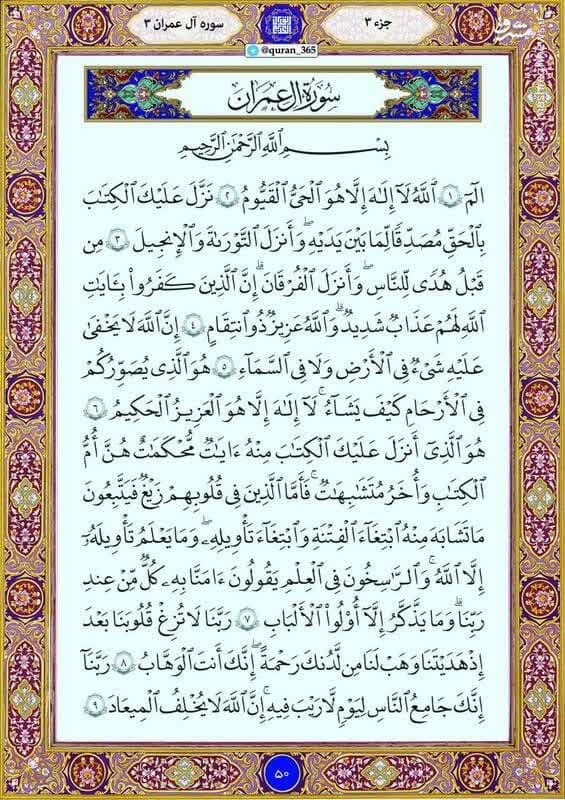 جزء ۳
سوره آل عمران ۳
@quran_365
سُورَةُ آلِ عِمۡرَانَ
بِسۡمِ ٱللَّهِ ٱلرَّحۡمَٰنِ ٱلرَّحِيمِ
الٓمٓ ١ ٱللَّهُ لَآ إِلَٰهَ إِلَّا هُوَ ٱلۡحَيُّ ٱلۡقَيُّومُ ٢ نَزَّلَ عَلَيۡكَ ٱلۡكِتَٰبَ
بِٱلۡحَقِّ مُصَدِّقٗا لِّمَا بَيۡنَ يَدَيۡهِ وَأَنزَلَ ٱلتَّوۡرَىٰةَ وَٱلۡإِنجِيلَ ٣ مِن
قَبۡلُ هُدٗى لِّلنَّاسِ وَأَنزَلَ ٱلۡفُرۡقَانَۗ إِنَّ ٱلَّذِينَ كَفَرُواْ بِـَٔايَٰتِ
ٱللَّهِ لَهُمۡ عَذَابٞ شَدِيدٞۗ وَٱللَّهُ عَزِيزٞ ذُو ٱنتِقَامٍ ٤ إِنَّ ٱللَّهَ لَا يَخۡفَىٰ
عَلَيۡهِ شَيۡءٞ فِي ٱلۡأَرۡضِ وَلَا فِي ٱلسَّمَآءِ ٥ هُوَ ٱلَّذِي يُصَوِّرُكُمۡ
فِي ٱلۡأَرۡحَامِ كَيۡفَ يَشَآءُۚ لَآ إِلَٰهَ إِلَّا هُوَ ٱلۡعَزِيزُ ٱلۡحَكِيمُ ٦
هُوَ ٱلَّذِيٓ أَنزَلَ عَلَيۡكَ ٱلۡكِتَٰبَ مِنۡهُ ءَايَٰتٞ مُّحۡكَمَٰتٌ هُنَّ أُمُّ
ٱلۡكِتَٰبِ وَأُخَرُ مُتَشَٰبِهَٰتٞۖ فَأَمَّا ٱلَّذِينَ فِي قُلُوبِهِمۡ زَيۡغٞ فَيَتَّبِعُونَ
مَا تَشَٰبَهَ مِنۡهُ ٱبۡتِغَآءَ ٱلۡفِتۡنَةِ وَٱبۡتِغَآءَ تَأۡوِيلِهِۦۖ وَمَا يَعۡلَمُ تَأۡوِيلَهُۥٓ
إِلَّا ٱللَّهُۗ وَٱلرَّٰسِخُونَ فِي ٱلۡعِلۡمِ يَقُولُونَ ءَامَنَّا بِهِۦ كُلّٞ مِّنۡ عِندِ
رَبِّنَاۗ وَمَا يَذَّكَّرُ إِلَّآ أُوْلُواْ ٱلۡأَلۡبَٰبِ ٧ رَبَّنَا لَا تُزِغۡ قُلُوبَنَا بَعۡدَ
إِذۡ هَدَيۡتَنَا وَهَبۡ لَنَا مِن لَّدُنكَ رَحۡمَةًۚ إِنَّكَ أَنتَ ٱلۡوَهَّابُ ٨ رَبَّنَآ
إِنَّكَ جَامِعُ ٱلنَّاسِ لِيَوۡمٖ لَّا رَيۡبَ فِيهِۚ إِنَّ ٱللَّهَ لَا يُخۡلِفُ ٱلۡمِيعَادَ ٩
۵۰